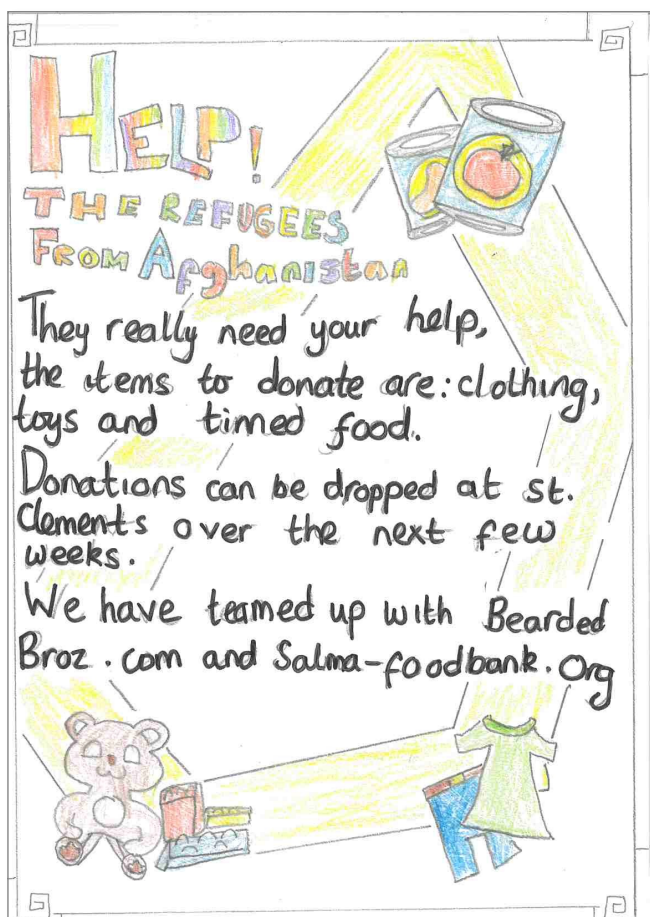 HELP!
THE REFUGEES
FROM Afghanistan
They really need your help,
the items to donate are: clothing,
toys and timed food.
Donations can be dropped at st.
Clements over the next few
weeks.
We have teamed up with Bearded
Broz.com and Salma-foodbank.Org